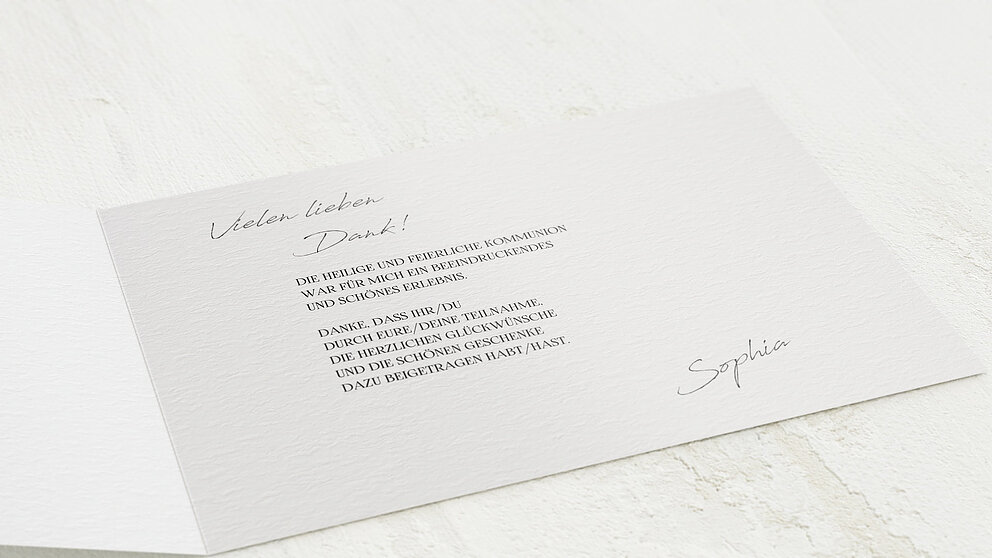 Vielen lieben
Dank!
DIE HEILIGE UND FEIERLICHE KOMMUNION
WAR FÜR MICH EIN BEEINDRUCKENDES
UND SCHÖNES ERLEBNIS.
DANKE, DASS IHR/DU
DURCH EURE/DEINE TEILNAHME,
DIE HERZLICHEN GLÜCKWÜNSCHE
UND DIE SCHÖNEN GESCHENKE
DAZU BEIGETRAGEN HABT/HAST.
Sophia